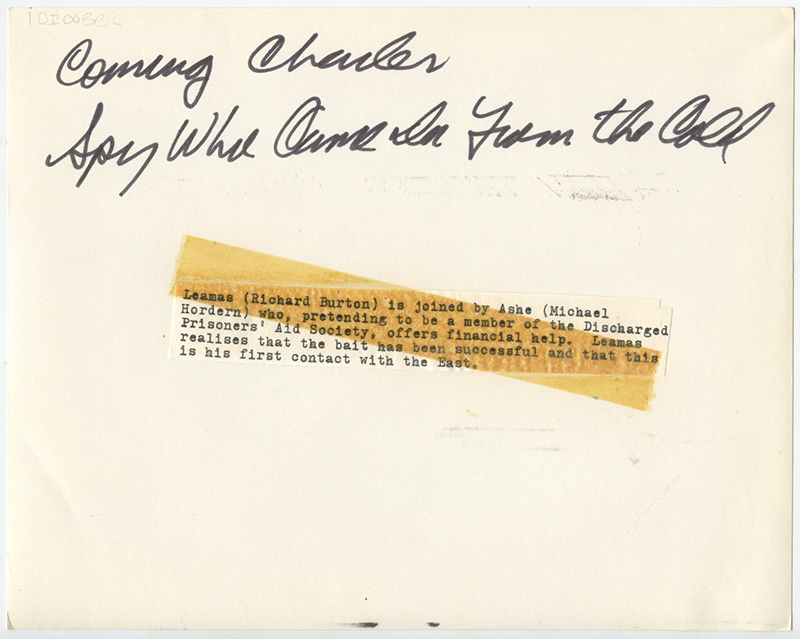 Coming Charles
Spy Who Came In From the Cold
Leamas (Richard Burton) is joined by Ashe (Michael
Hordern) who, pretending to be a member of the Discharged
Prisoners' Aid Society, offers financial help. Leamas
realises that the bait has been successful and that this
is his first contact with the East.